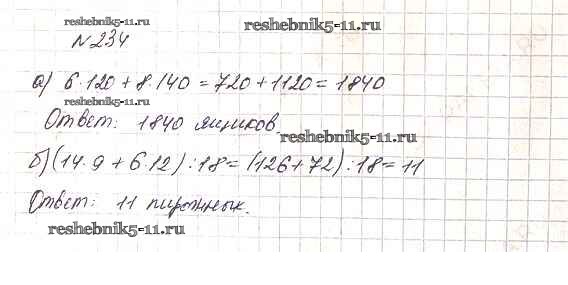 reshebnik5-11.ru
reshebnik5-11.ru
№234
а) 6·120+8·140=720+1120=1840
reshebnik5-11.ru
Ответ: 1840 ящиков.
reshebnik5-11.ru
б) (14·9+6·12):18=(126+72):18=11
Ответ: 11 пирожных.
reshebnik5-11.ru